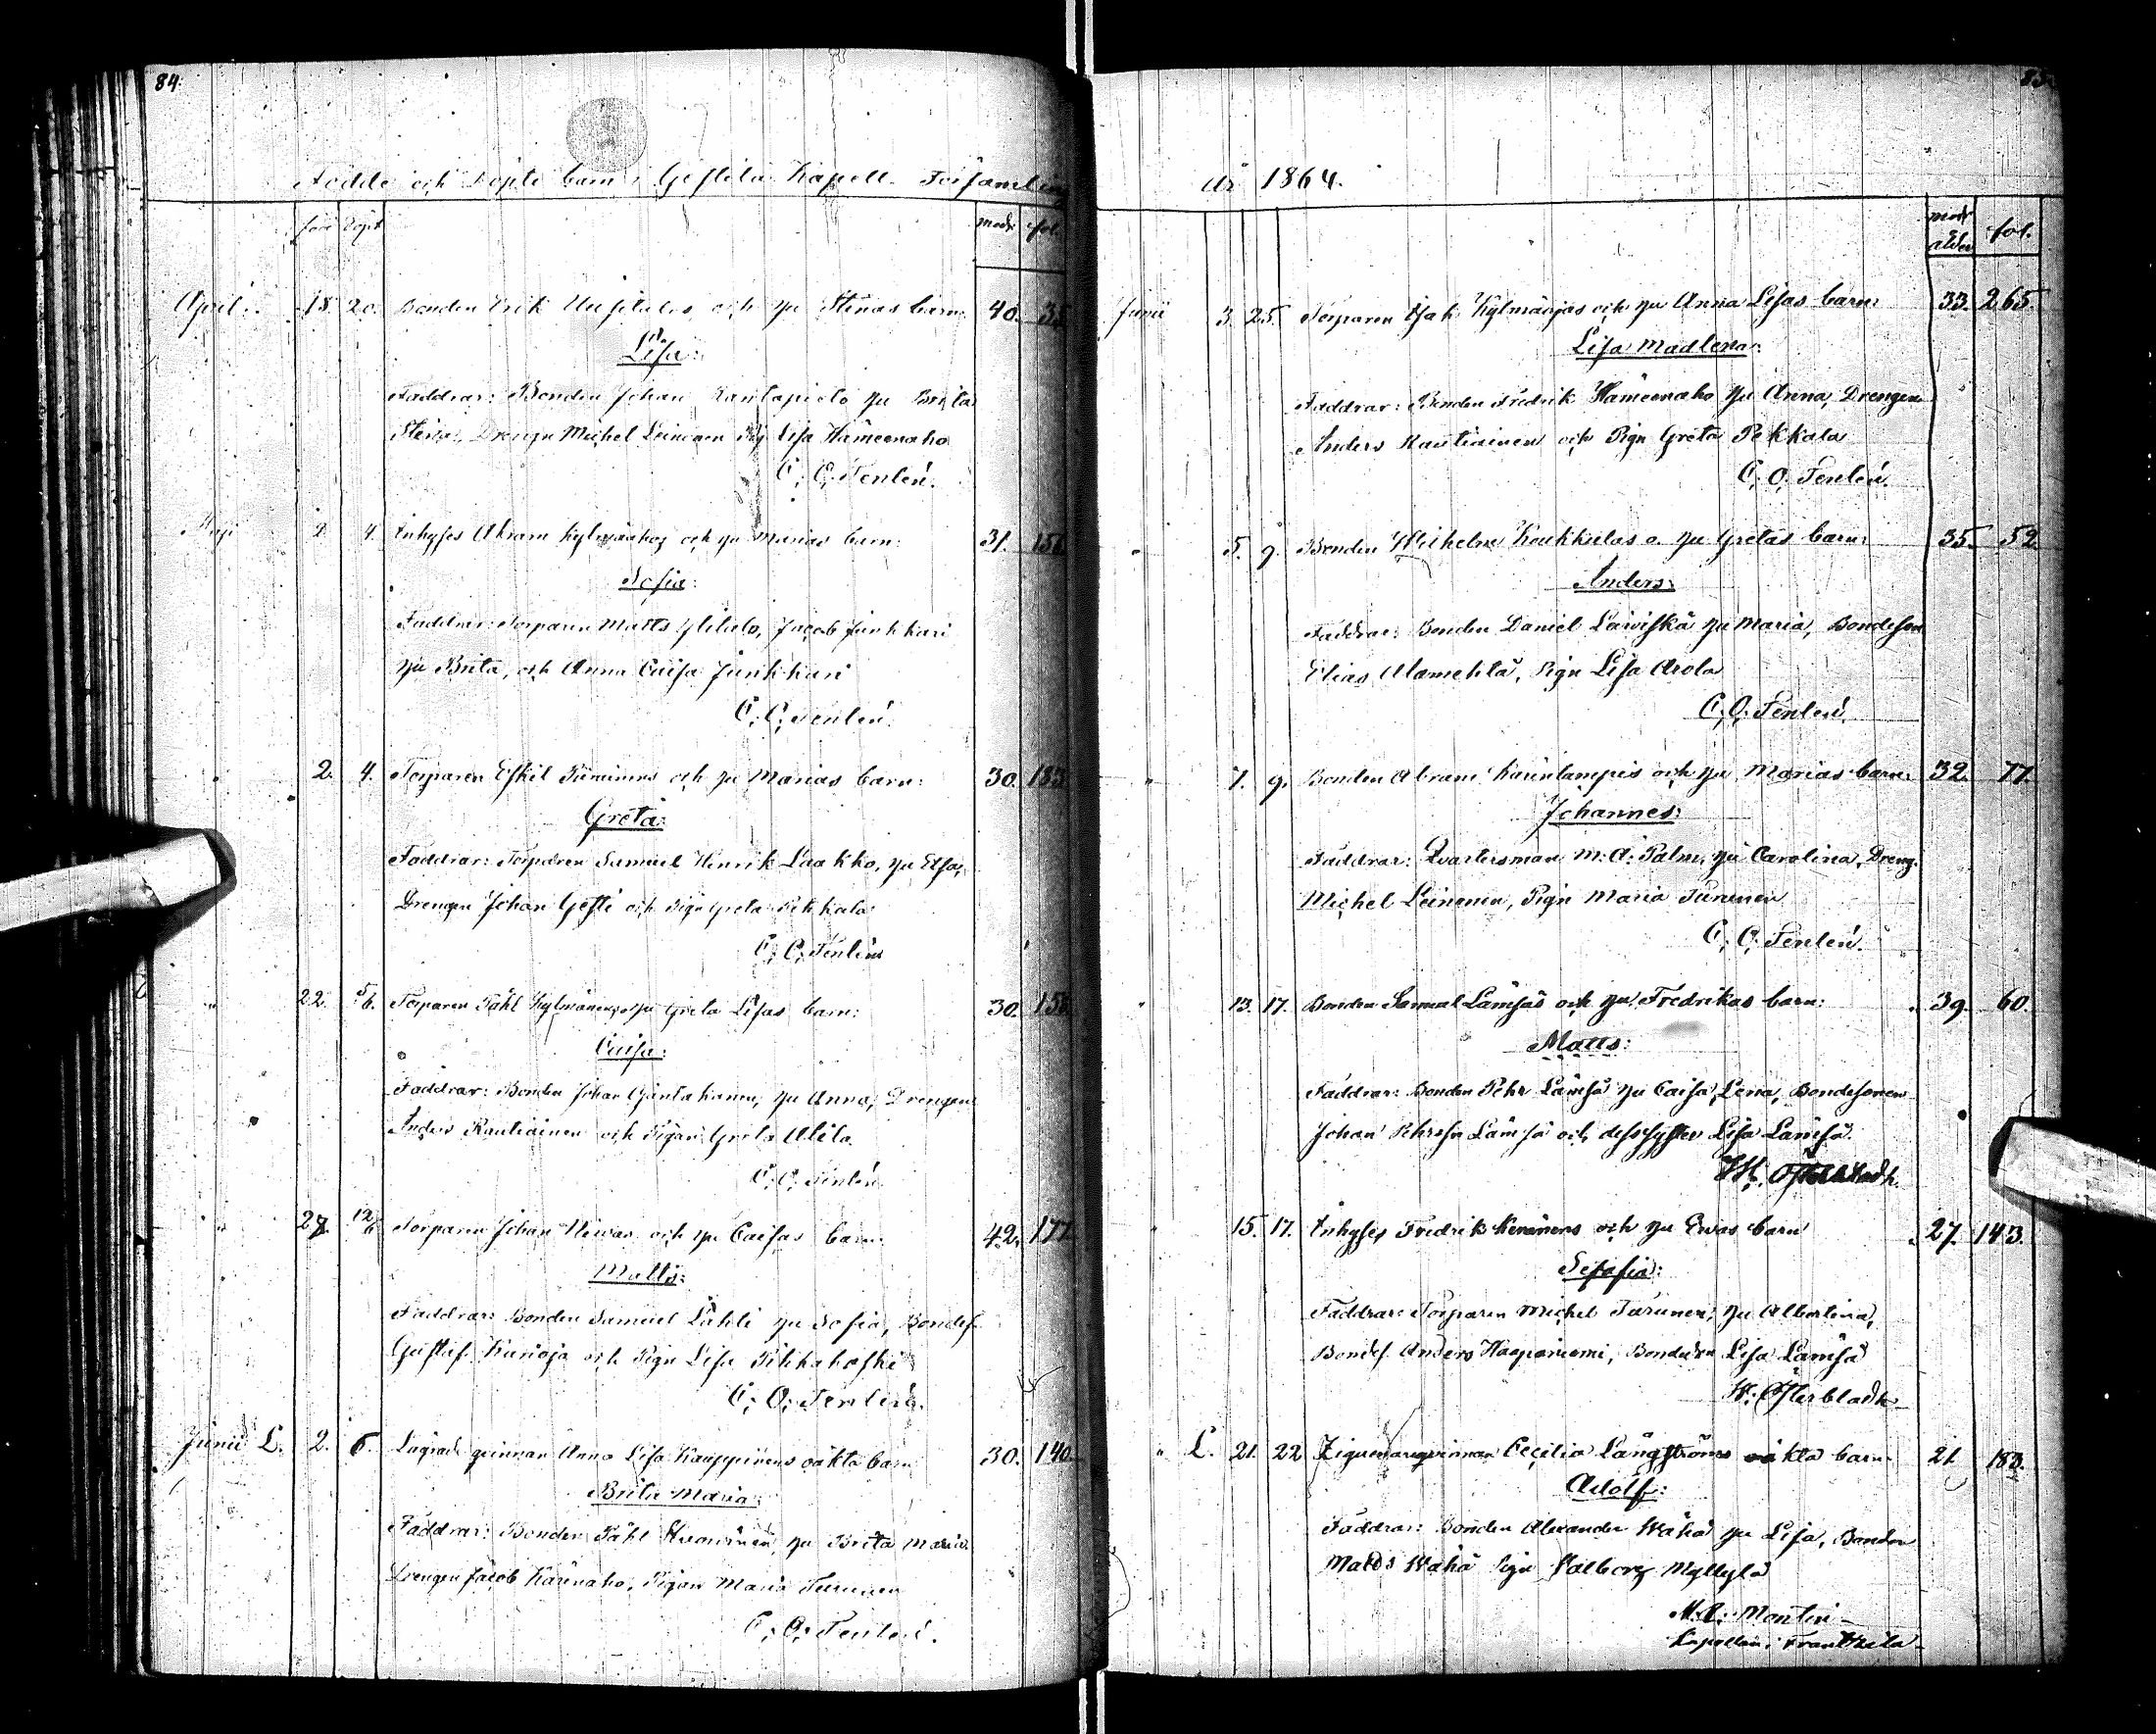 84.
Födde och Döpte barn i Gestila Kapell Församling
föde döpt
mods fol.
April. 18. 20. Bonden Erik och hu Stinas barn: 40. 35
Lisa:
Faddrar: Bonden Johan hu Brita
Stina, Drengn Michel Leinonen Pig Lisa Hämeenaho
C. O. Tenlén.
Maji 2. 4. Inhyses Abram och hu Marias barn: 31. 156
Sofia:
Faddrar: Torparen Matts Jacob Junkkari
hu Brita, och Anna Caisa Junkkari
C. O. Tenlén.
" 2. 4. Torparen Eskil och hu Marias barn: 30. 183.
Greta:
Faddrar: Torparen Samuel Henrik Laakko, hu Elsa,
Drengen Johan Gesti och Pign Greta Pekkala
C. O. Tenlén
" 22. 5/6. Torparen Påhl hu Greta Lisas barn: 30. 155.
Caisa:
Faddrar: Bonden Johan hu Anna, Drengen
Anders Rautiainen och Pigan Greta Alila
C. O. Tenlén.
" 27. 12/6 Torparen Johan och hu Caisas barn: 42. 177
Matts:
Faddrar: Bonden Samuel Lähli hu Sofia, Bondes.
Gustaf Karioja och Pign Lisa
C. O. Tenlén.
Junii L. 2. 6. qvinnan Anna Lisa Kauppinens oäkta barn 30. 140.
Brita Maria:
Faddrar: Bonden Påhl hu Brita Maria
Drengen Jacob Pigan Maria Turunen
C. O. Tenlén.
85.
år 1864.
mods ålder fol.
Junii 3. 25. Torparen Isak Kylmänjas och hu Anna Lisas barn: 33. 265.
Lisa Madlena:
Faddrar: Bonden Fredrik Hämeenaho hu Anna, Drengen
Anders Rautiainen och Pign Greta Pekkala
C. O. Tenlén.
" 5. 9. Bonden Wilhelm Koukkulas o. hu Gretas barn: 35. 52
Anders:
Faddrar: Bonden Daniel Laiviskä hu Maria, Bondeson
Elias Alamehtä, Pign Lisa Arola
C. O. Tenlén.
" 7. 9. Bonden Abram Kaunlampis och hu Marias barn: 32. 77.
Johannes:
Faddrar: Qvartersman M: A: Palm, hu Carolina, Dreng.
Michel Leinonen, Pign Maria Turunen
C. O. Tenlén.
" 13. 17. Bonden Samuel Lämsäs och hu Fredrikas barn: 39. 60.
Matts:
Faddrar: Bonden Pehr Lämsä hu Caisa Lena, Bondesonen
Johan Pehrsson Lämsä och dess syster Lisa Lämsä.
W. Österbladh.
" 15. 17. Inhyses Fredrik Keränens och hu Ewas barn 27. 143.
Sefafia:
Faddrar: Torparen Michel Turunen, hu Albertina,
Bondes. Anders Haapaniemi, Lisa Lämsä
W. Österbladh.
" L. 21. 22 Zigenarqvinnan Cecilia Långströms oäkta barn 21. 183.
Adolf:
Faddrar: Bonden Alexander Wähä hu Lisa, Bonden
Matts Wähä Pign Walborg Myllylä
M. A. Montin
Capellan i Frantsila